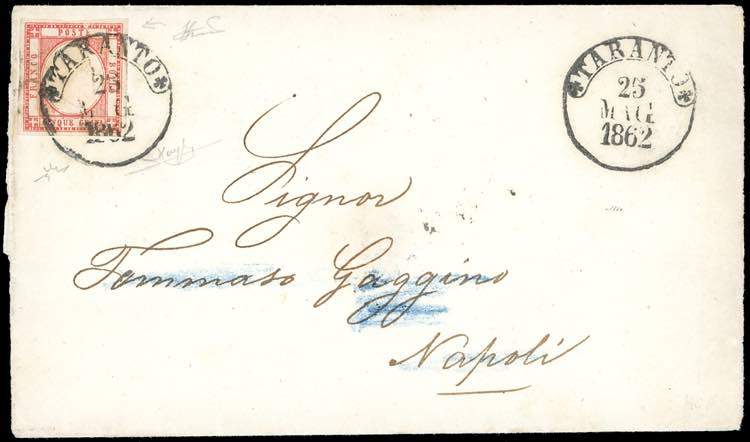 POSTE
FRANCO
BOLLO
*TARANTO*
25
MAG
1862
QUE G
*TARANTO*
25
MAG
1862
Signor
Tommaso Gaggino
Napoli